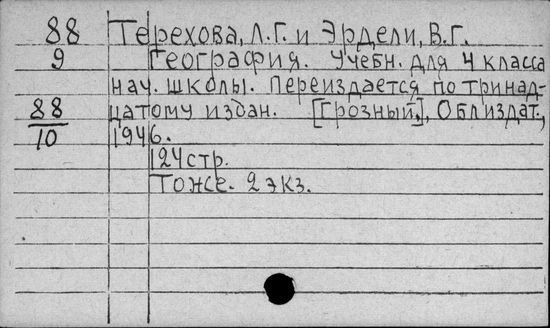 88 Терехова, Л.Г. и Эрдели, В.Г.
9 География. Учебн. для 4 класса
нач. школы. Переиздается по тринад-
88 цатому издан. [Грозный], Облиздат.,
10 1946.
124 стр.
Тоже. 2 экз.